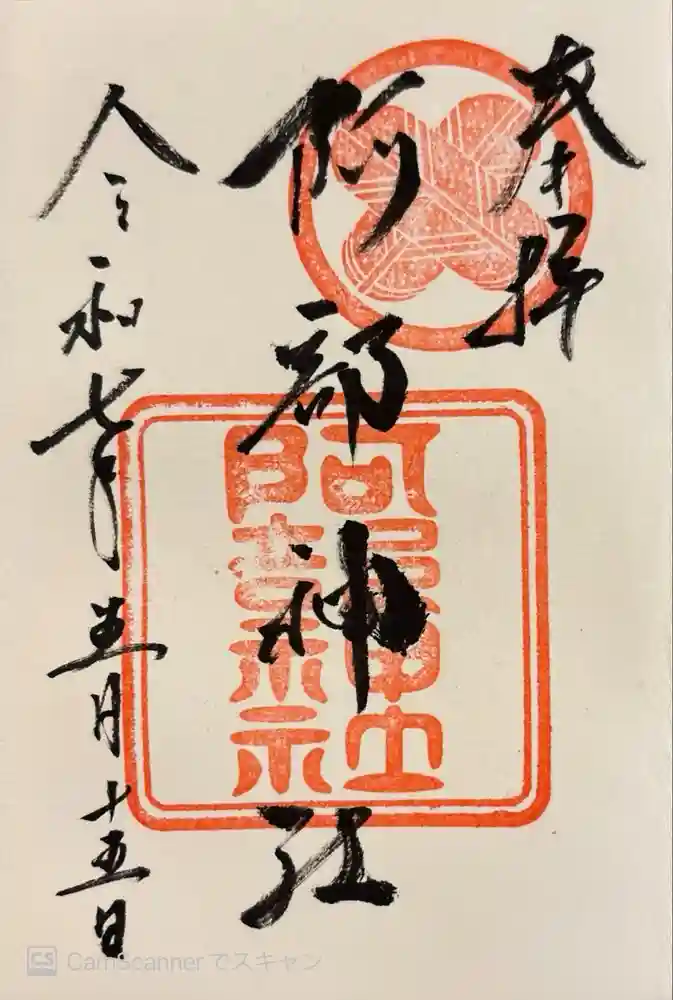 奉拝
阿部神社
阿部神社
令和七年五月十五日
CS CamScanner でスキャン